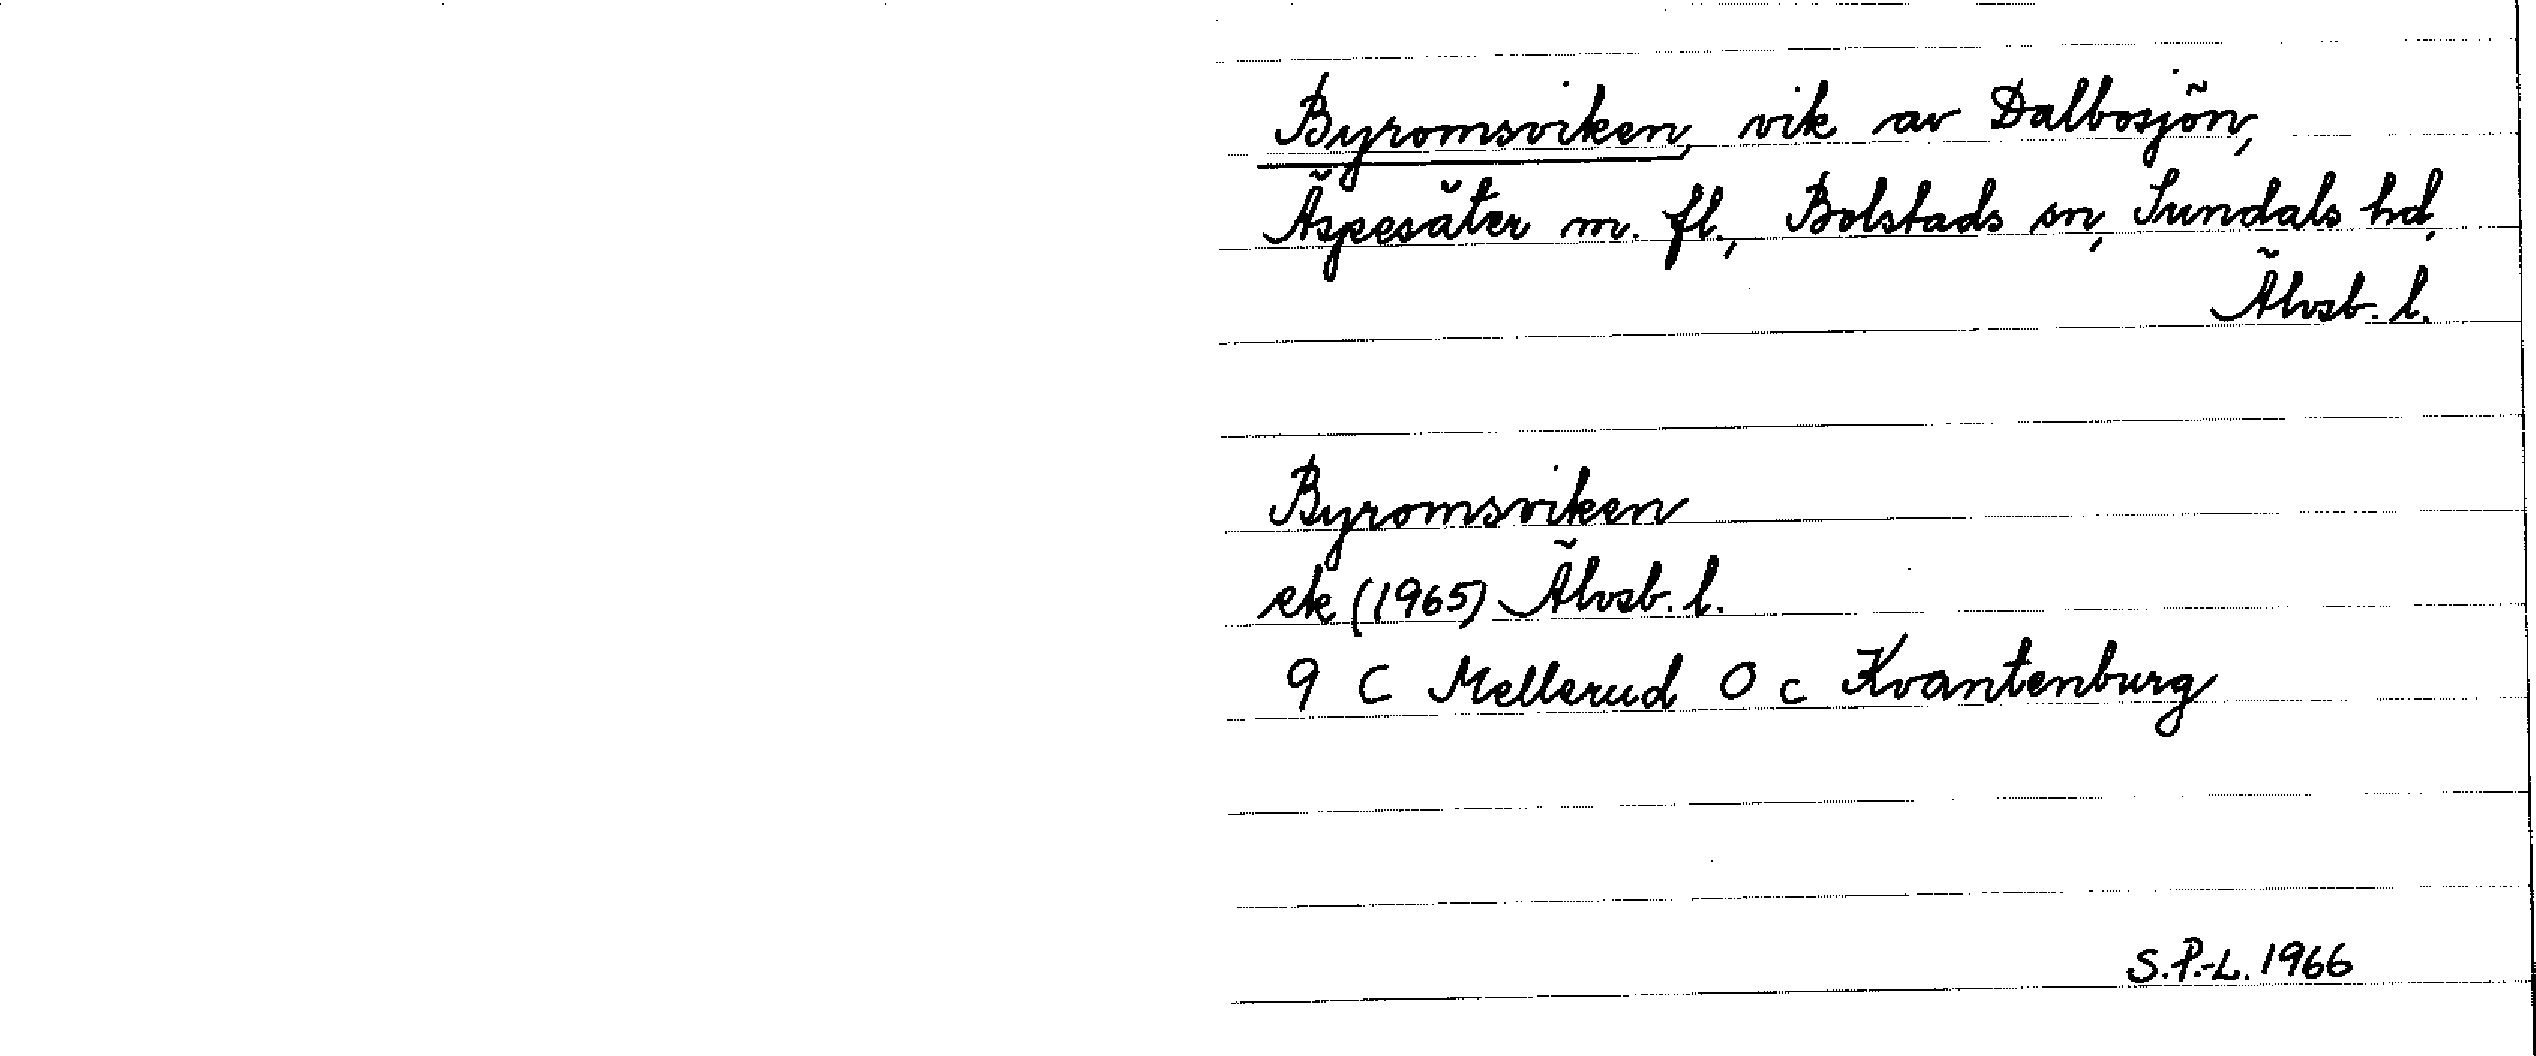 Byromsviken, vik av Dalbosjön,
Äspesäter m. fl., Bolstads sn, Sundals hd,
Älvsb. l.
Byromsviken
ek (1965) Älvsb. l.
9 C Mellerud O c Kvantenburg
S.P.-L. 1966